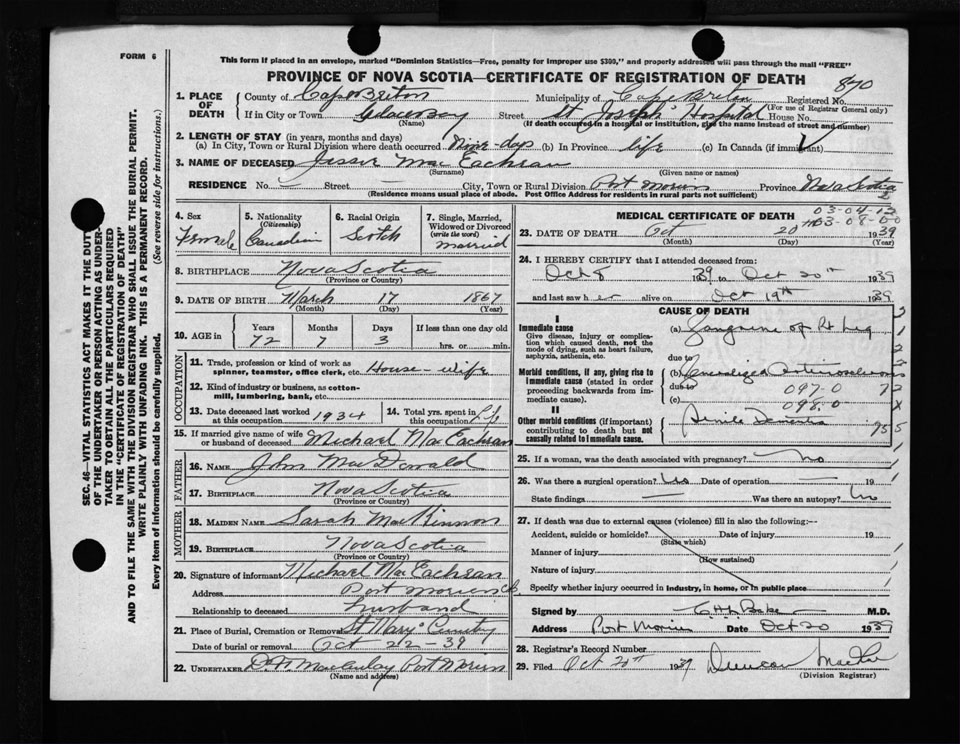 FORM 6
This form if placed in an envelope, marked "Dominion Statistics—Free, penalty for improper use $300," and properly addressed will pass through the mail "FREE"
PROVINCE OF NOVA SCOTIA—CERTIFICATE OF REGISTRATION OF DEATH
870
1. PLACE OF DEATH
County of Cape Breton Municipality of Cape Breton Registered No.
(For use of Registrar General only)
If in City or Town Glace Bay Street St Joseph's Hospital House No.
(Name) (If death occurred in a hospital or institution, give the name instead of street and number)
2. LENGTH OF STAY (in years, months and days)
(a) In City, Town or Rural Division where death occurred Nine-days (b) In Province life (c) In Canada (if immigrant)
3. NAME OF DECEASED Jessie MacEachran
(Surname) (Given name or names)
RESIDENCE No. — Street — City, Town or Rural Division Port Morien Province Nova Scotia
(Residence means usual place of abode. Post Office Address for residents in rural parts not sufficient)
2
SEC. 46—VITAL STATISTICS ACT MAKES IT THE DUTY
OF THE UNDERTAKER OR PERSON ACTING AS UNDER-
TAKER TO OBTAIN ALL THE PARTICULARS REQUIRED
IN THE "CERTIFICATE OF REGISTRATION OF DEATH"
AND TO FILE THE SAME WITH THE DIVISION REGISTRAR WHO SHALL ISSUE THE BURIAL PERMIT.
WRITE PLAINLY WITH UNFADING INK. THIS IS A PERMANENT RECORD.
Every item of information should be carefully supplied. (See reverse side for instructions.)
4. Sex Female
5. Nationality (Citizenship) Canadian
6. Racial Origin Scotch
7. Single, Married, Widowed or Divorced (write the word) married
8. BIRTHPLACE Nova Scotia
(Province or Country)
9. DATE OF BIRTH March 17 1867
(Month) (Day) (Year)
10. AGE in Years Months Days If less than one day old
72 7 3 hrs. or min.
OCCUPATION
11. Trade, profession or kind of work as spinner, teamster, office clerk, etc. House-wife
12. Kind of industry or business, as cotton-mill, lumbering, bank, etc.
13. Date deceased last worked at this occupation 1934
14. Total yrs. spent in Life
15. If married give name of wife or husband of deceased Michael MacEachran
FATHER
16. Name John MacDonald
17. Birthplace Nova Scotia
(Province or Country)
MOTHER
18. Maiden Name Sarah MacKinnon
19. Birthplace Nova Scotia
(Province or Country)
20. Signature of informant Michael MacEachran
Address Port Morien
Relationship to deceased husband
21. Place of Burial, Cremation or Removal St Mary's Cemetery
Date of burial or removal Oct - 22 - 39
22. Undertaker Port Morien
(Name and address)
MEDICAL CERTIFICATE OF DEATH
03-04-12
03-08-0-0
23. DATE OF DEATH Oct 20th 1939
(Month) (Day) (Year)
24. I HEREBY CERTIFY that I attended deceased from:
Oct 8 1939 to Oct 20th 1939
and last saw her alive on Oct 19th 1939
CAUSE OF DEATH
I
Immediate cause
Give disease, injury or complication which caused death, not the mode of dying, such as heart failure, asphyxia, asthenia, etc.
(a) Gangrene of Rt Leg
due to
Morbid conditions, if any, giving rise to immediate cause (stated in order proceeding backwards from immediate cause).
(b) Generalized Arteriosclerosis
due to 097-0
(c) 098-0
II
Other morbid conditions (if important) contributing to death but not causally related to immediate cause.
Senile Dementia
25. If a woman, was the death associated with pregnancy? No
26. Was there a surgical operation? No Date of operation — 19
State findings — Was there an autopsy? No
27. If death was due to external causes (violence) fill in also the following:—
Accident, suicide or homicide? Date of injury 19
(State which)
Manner of injury
(How sustained)
Nature of injury
Specify whether injury occurred in industry, in home, or in public place
Signed by M.D.
Address Port Morien Date Oct 20 1939
28. Registrar's Record Number
29. Filed Oct 20th 1939 Duncan
(Division Registrar)